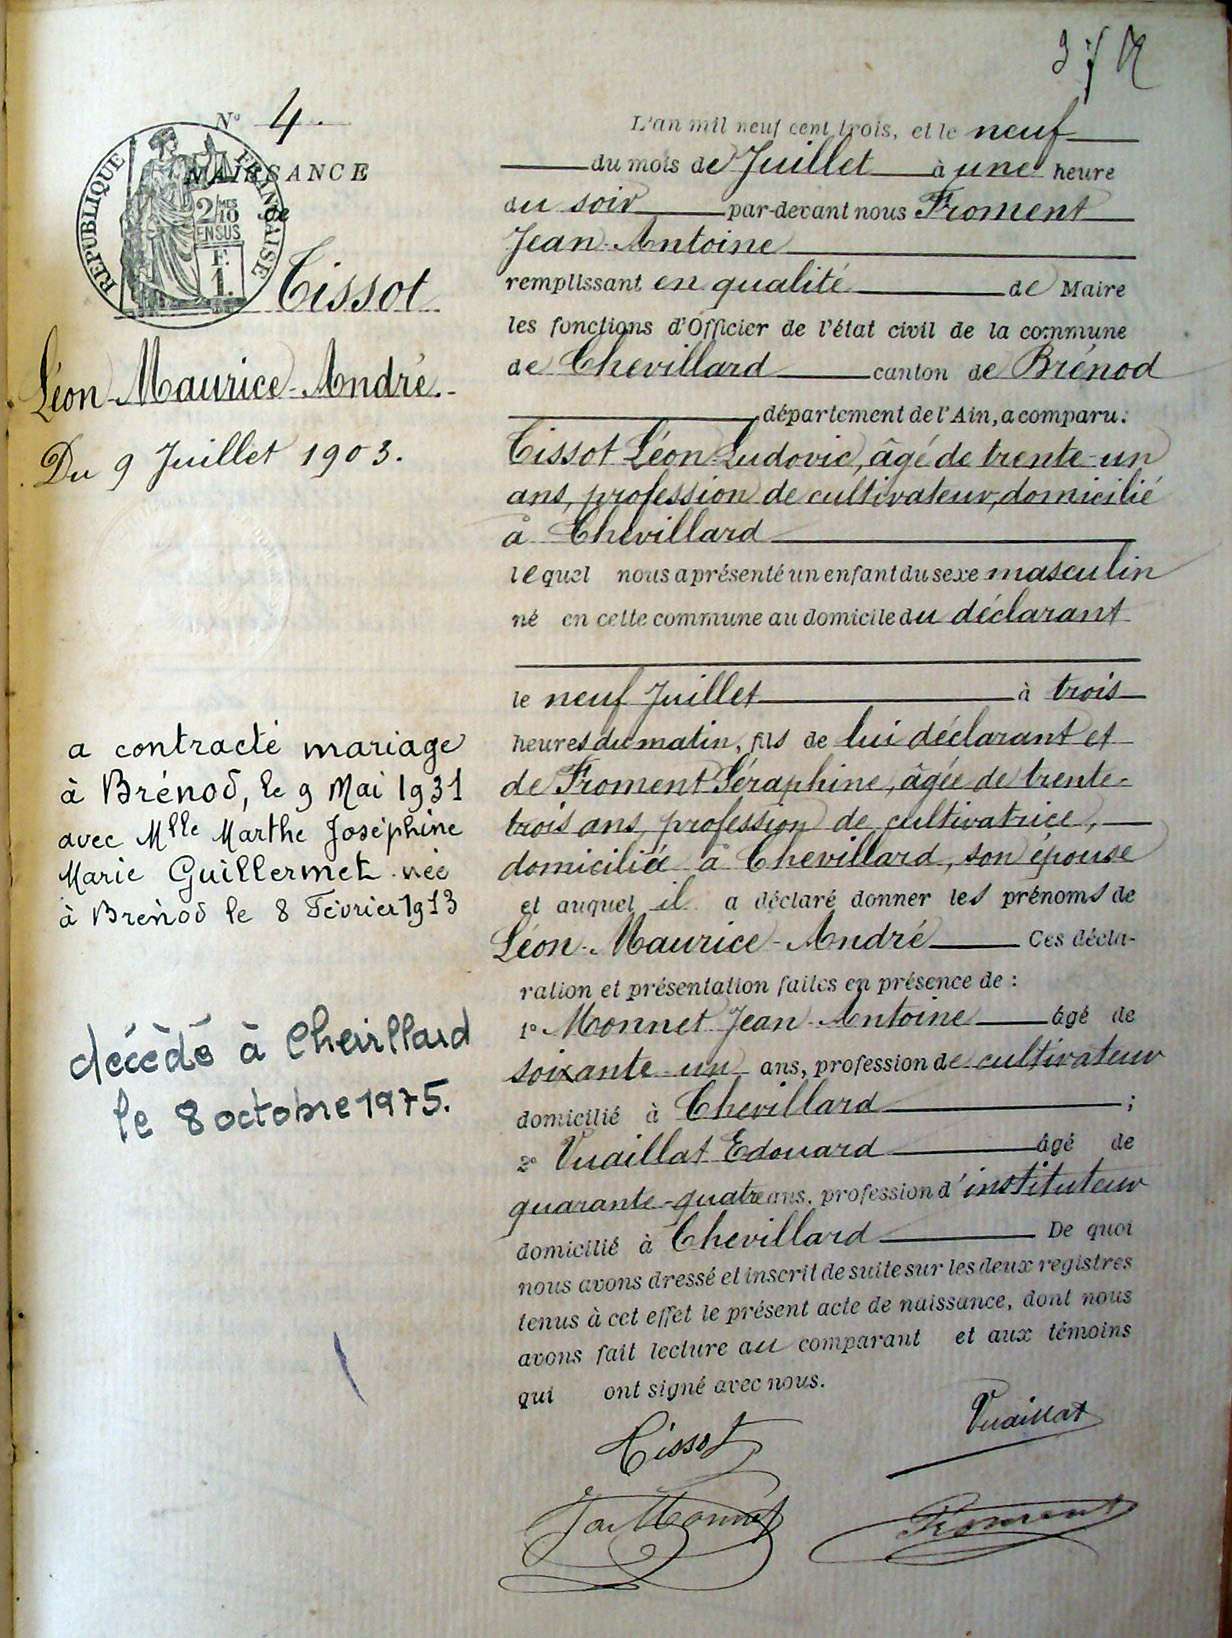 N° 4.
NAISSANCE
de
REPUBLIQUE FRANCAISE
2/10 MES
EN SUS
F.
1.
Tissot
Léon-Maurice-André.
Du 9 Juillet 1903.
a contracté mariage
à Brénod, le 9 Mai 1931
avec Mlle Marthe Joséphine
Marie Guillermet née
à Brénod le 8 Février 1913
décédé à Chevillard
le 8 octobre 1975.
L'an mil neuf cent trois, et le neuf
du mois de Juillet à une heure
du soir par-devant nous Froment
Jean-Antoine
remplissant en qualité de Maire
les fonctions d'Officier de l'état civil de la commune
de Chevillard canton de Brénod
département de l'Ain, a comparu:
Tissot Léon-Ludovic, âgé de trente-un
ans, profession de cultivateur, domicilié
à Chevillard
lequel nous a présenté un enfant du sexe masculin
né en cette commune au domicile du déclarant
le neuf Juillet à trois
heures du matin, fils de lui déclarant et
de Froment Séraphine, âgée de trente-
trois ans, profession de cultivatrice,
domiciliée à Chevillard, son épouse
et auquel il a déclaré donner les prénoms de
Léon-Maurice-André Ces décla-
ration et présentation faites en présence de :
1° Monnet Jean-Antoine âgé de
soixante-un ans, profession de cultivateur
domicilié à Chevillard ;
2° Vuaillat Edouard âgé de
quarante-quatre ans, profession d'instituteur
domicilié à Chevillard De quoi
nous avons dressé et inscrit de suite sur les deux registres
tenus à cet effet le présent acte de naissance, dont nous
avons fait lecture au comparant et aux témoins
qui ont signé avec nous.
Tissot Vuaillat
Monnet Froment